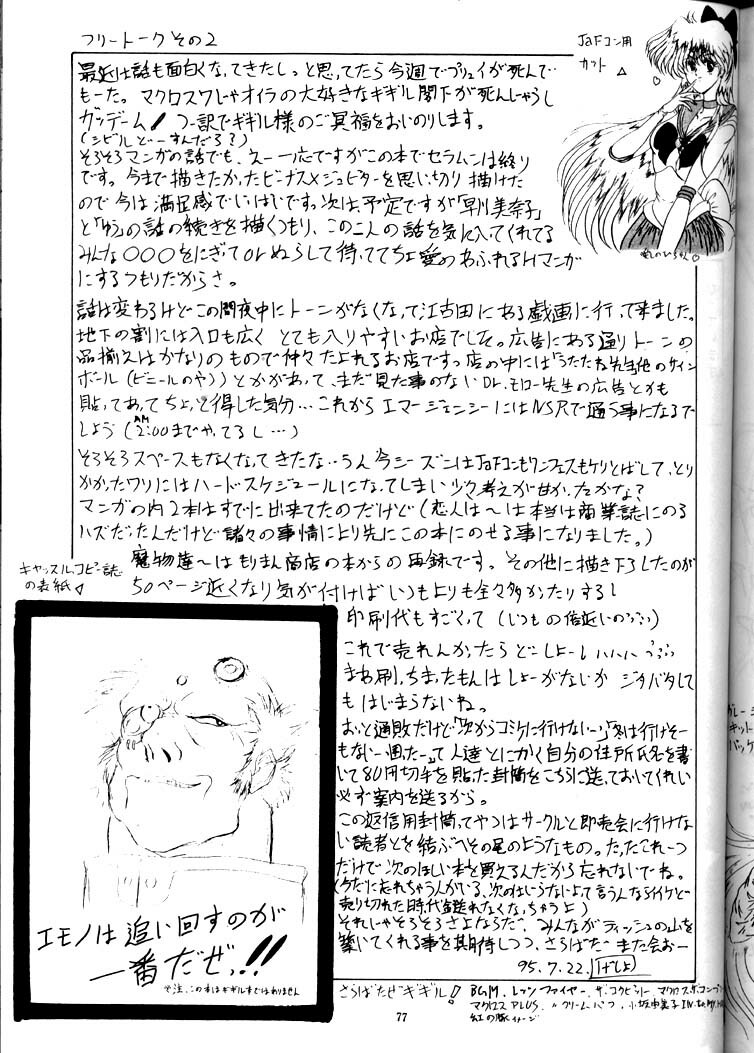 フリートークその2
JaFコン用
カット
最近は話も面白くなってきたしっと思ってたら今週でプリュイが死んで…
もーた。マクロス7じゃオイラの大好きなギギル閣下が死んじゃうし
ガッデーム! つー訳でギギル様のご冥福をおいのりします。
(シビルどーすんだろ?)
そろそろマンガの話でも、えー一応ですがこの本でセラムンは終り
です。今まで描きたかったビーナス×ジュピターを思い切り描けた
ので今は満足感でいっぱいです。次は、予定ですが「早川美奈子」
と「ゆう」の話の続きを描くつもり、この二人の話を気に入ってくれてる
みんな○○○をにぎってorぬらして待っててちょ愛のあふれるHマンガ
にするつもりだからさ。
話は変わるけどこの間夜中にトーンがなくなって江古田にある戯画に行って来ました。
地下の割には入口も広くとても入りやすいお店でした。広告にある通りトーンの
品揃えはかなりのもので仲々たよれるお店です。店の中には「うたたね先生他のサイン
ボール(ビニールのやつ)とかがあって、まだ見た事のないDr.モロー先生の広告とかも
貼ってあってちょっと得した気分…これからエマージェンシーにはNSRで通う事になるで
しょう(AM2:00までやってるし…)
そろそろスペースもなくなってきたな…うん今シーズンはJaFコンもワンフェスもケリとばして、とり
かかったワリにはハードスケジュールになってしまい少々考えが甘かったかな?
マンガの内2本はすでに出来てたのだけど(恋人は〜は本当は商業誌にのる
ハズだったんだけど諸々の事情により先にこの本にのせる事になりました。)
魔物達〜はもりまん商店の本からの再録です。その他に描き下ろしたのが
50ページ近くなり気が付けばいつもよりも全々多かったりするし
印刷代もすごくって(いつもの倍近いのぅぅぅ)
これで売れんかったらどーしよーし
まあ刷っちまったもんはしょーがないかジタバタして
もはじまらないね。
おっと通販だけど「次からコミケに行けないー」「冬は行けそー
もないー困ったー」って人達とにかく自分の住所氏名を書
いて80円切手を貼った封筒をこちらに送っておいてくれい
必ず案内を送るから。
この返信用封筒ってやつはサークルと即売会に行けな
い読者とを結ぶへその尾のようなもの。たったこれ一つ
だけで次のほしい本を買えるんだから忘れないでね。
(今だに忘れちゃう人がいる、次のはいらないよって言うんならイイけど
売り切れた時代金送れなくなっちゃうよ)
それじゃそろそろさよならだ、みんながティッシュの山を
築いてくれる事を期待しつつ、さらばだ また会おー
95.7.22.
キャッスルコピー誌
の表紙
エモノは追い回すのが
一番だぜっ!!
※注、この本はギギル本ではありません
さらばだぜギギル!
BGM、レッツファイヤー、ザ・コクピット、マクロス・ザ・コンプリ
マクロスPLUS、〃クリームパフ、小坂由美子
紅の豚イメージ
77
キット
パッケ